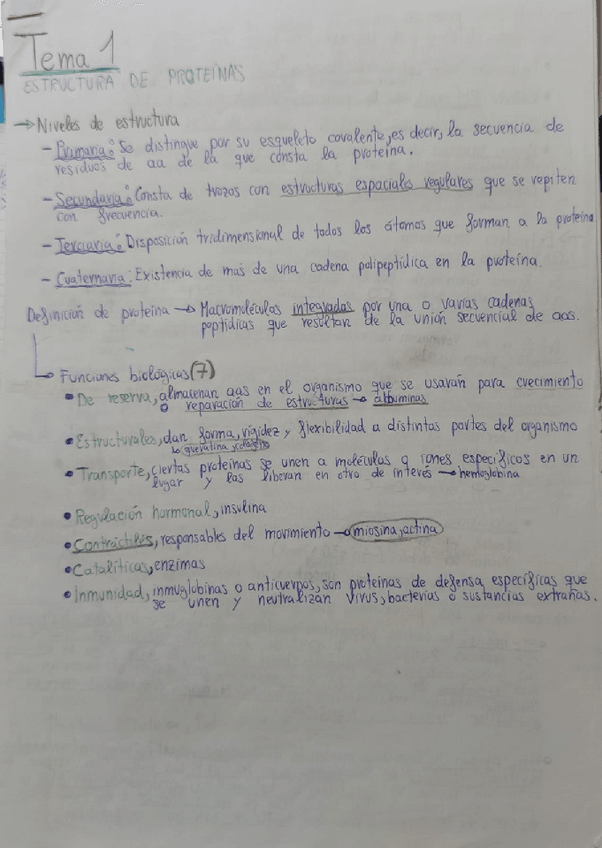 Tema 1
ESTRUCTURA DE PROTEÍNAS
→ Niveles de estructura
- Primaria: Se distingue por su esqueleto covalente, es decir, la secuencia de
residuos de aa de la que consta la proteína.
- Secundaria: Consta de trozos con estructuras espaciales regulares que se repiten
con frecuencia.
- Terciaria: Disposición tridimensional de todos los átomos que forman a la proteína
- Cuaternaria: Existencia de más de una cadena polipeptídica en la proteína.
Definición de proteína → Macromoléculas integradas por una o varias cadenas
peptídicas que resultan de la unión secuencial de aas.
→ Funciones biológicas (7)
• De reserva, almacenan aas en el organismo que se usarán para crecimiento
o reparación de estructuras → albúminas
• Estructurales, dan forma, rigidez y flexibilidad a distintas partes del organismo
↳ queratina y
• Transporte, ciertas proteínas se unen a moléculas o iones específicos en un
lugar y las liberan en otro de interés → hemoglobina
• Regulación hormonal, insulina
• Contráctiles, responsables del movimiento → miosina, actina
• Catalíticas, enzimas
• Inmunidad, inmuglobinas o anticuerpos, son proteínas de defensa específicas que
se unen y neutralizan virus, bacterias o sustancias extrañas.